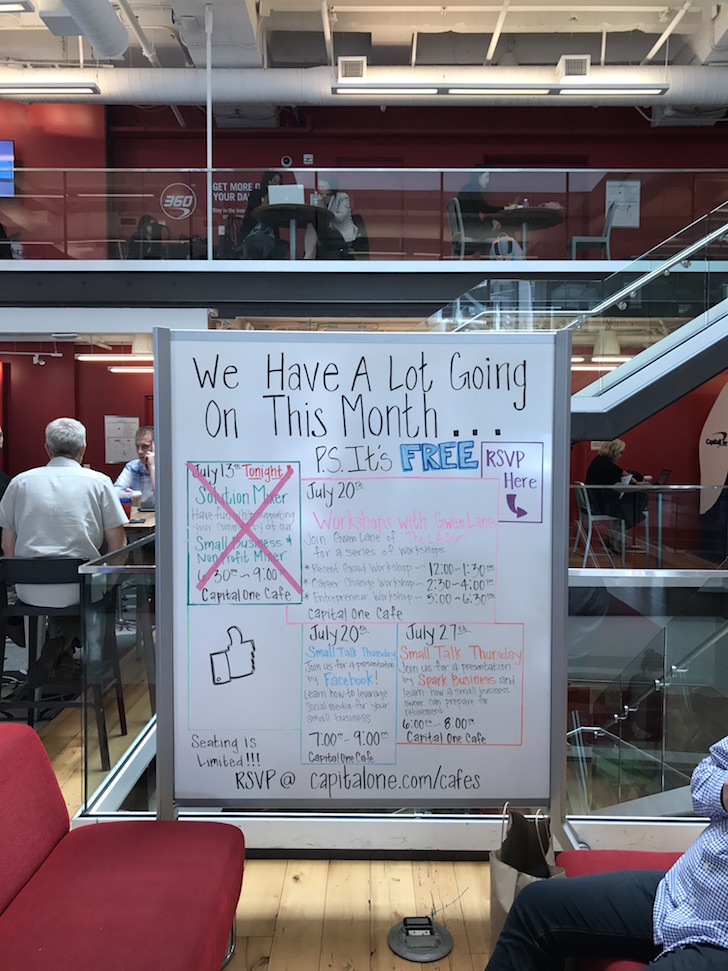 360
GET MORE
YOUR DA
We Have A Lot Going
On This Month ...
P.S. It's FREE
RSVP
Here
July 13th Tonight
Solution Mixer
Have fun while supporting
your community at our
Small Business &
Nonprofit Mixer
6:30pm - 9:00pm
Capital One Cafe
July 20th
Workshops with Gwen Lane
Join Gwen Lane of "The LA Girl"
for a series of workshops
* Recent Grad Workshop - 12:00-1:30pm
* Career Change Workshop - 2:30-4:00pm
* Entrepreneur Workshop - 5:00-6:30pm
Capital One Cafe
July 20th
Small Talk Thursday
Join us for a presentation
by Facebook!
learn how to leverage
social media for your
small business
7:00pm - 9:00pm
Capital One Cafe
July 27th
Small Talk Thursday
Join us for a presentation
by Spark Business and
learn how a small business
owner can prepare for
retirement
6:00pm - 8:00pm
Capital One Cafe
Seating is
Limited!!!
RSVP @ capitalone.com/cafes